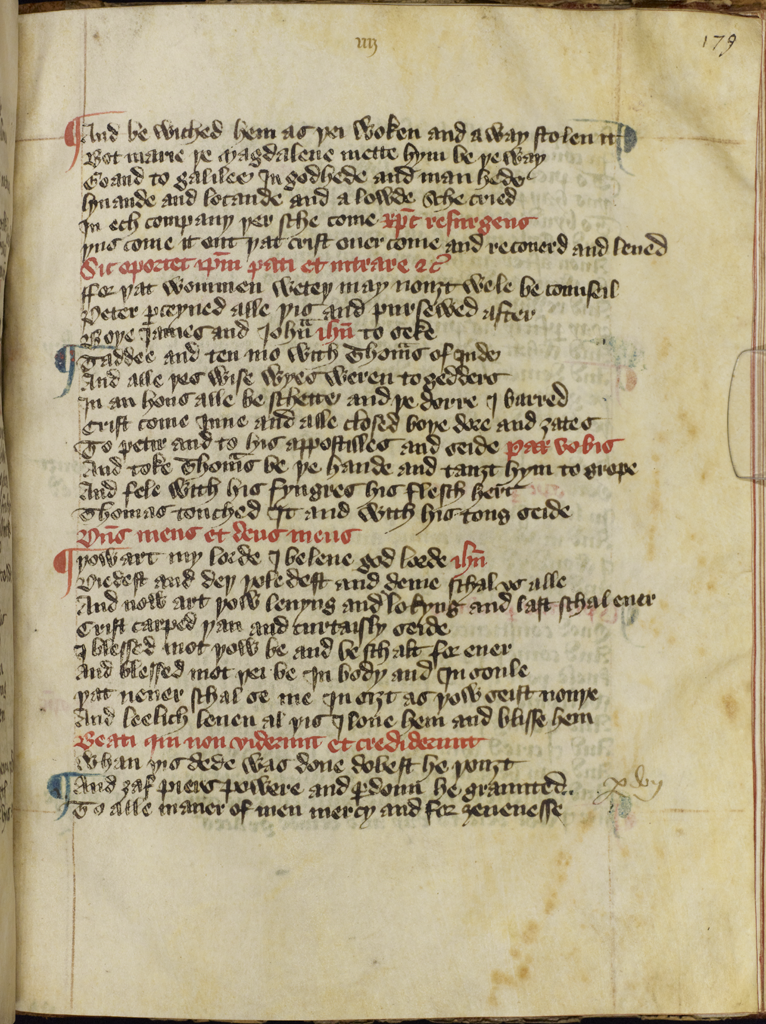 iiij
179
And be wiched hem as þei woken and a way stolen it
Bot marie þe magdalene mette hym be þe way
Goand to galilee In godhede and man hede
lyuande and lokande and a lowde sche cried
In ech company þer sche come xp̄c resurgens
þus come it out þat crist ouer come and recouerd and leued
Sic oportet xp̄m pati et intrare &c̄
ffor þat wommen wetey may nouȝt wele be counseil
Peter p̄ceyued alle þis and pursewed after
Boþe James and Joħn ihū to seke
Taddee and ten mo with Thom̄s of Jnde
And alle þes wise wyes weren to gedders
In an hous alle be schette and þe dorre I barred
Crist come Inne and alle closed boþe dore and ȝates
To petir and to his appostilles and seide pax vobis
And toke Thom̄s be þe hande and tauȝt hym to grope
And fele with his fyngres his flesch hert̄
Thomas touched It and with his tong seide
Dn̄s meus et deus meus
þow art my lorde I beleue god lorde ihū
Diedest and deþ þoledest and deme schal vs alle
And now art þow leuyng and lokyng and last schal euer
Crist carped þan and curtaisly seide
I blessed mot þow be and be schalt for euer
And blessed mot þei be In body and In soule
þat neuer schal se me In siȝt as þow seist nouþe
And leelich leuen al þis I loue hem and blisse hem
Beati qui non viderunt et crediderunt
Whan þis dede was done dobest he þouȝt
And ȝaf piers powere and p̄doun he graunted.
To alle maner of men mercy and for ȝeuenesse